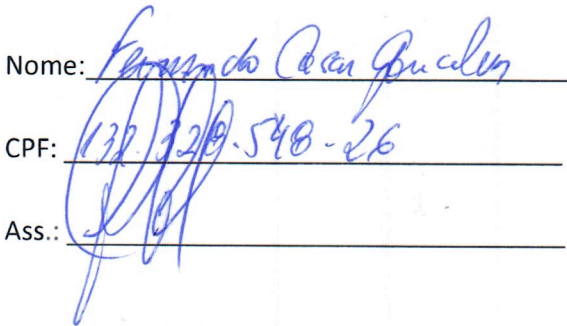 Nome: Fernando Cesar Goncalves
CPF: 132.328.548-26
Ass.: